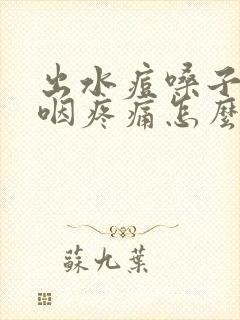 出水痘嗓子
咽疼痛怎麼
蘇九葉